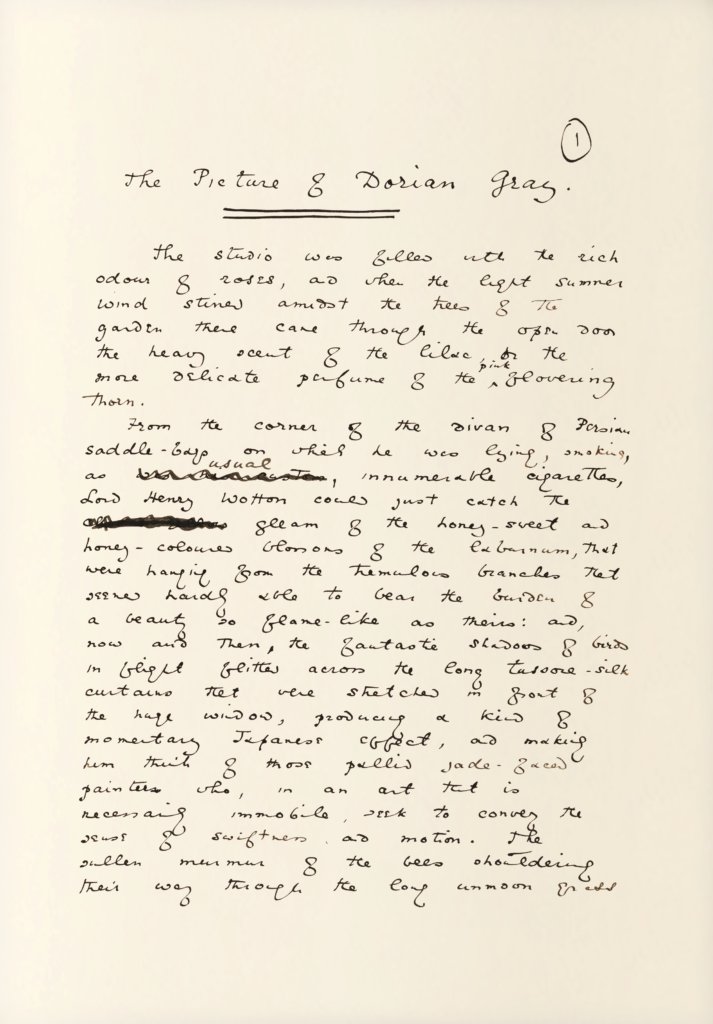 1
The Picture of Dorian Gray.
The studio was filled with the rich
odour of roses, and when the light summer
wind stirred amidst the trees of the
garden there came through the open door
the heavy scent of the lilac, or the
pink
more delicate perfume of the flowering
thorn.
From the corner of the divan of Persian
saddle-bags on which he was lying, smoking,
usual
as , innumerable cigarettes,
Lord Henry Wotton could just catch the
gleam of the honey-sweet and
honey-coloured blossoms of the laburnum, that
were hanging from the tremulous branches that
seemed hardly able to bear the burden of
a beauty so flame-like as theirs: and,
now and then, the fantastic shadows of birds
in flight flitted across the long tussore-silk
curtains that were stretched in front of
the huge window, producing a kind of
momentary Japanese effect, and making
him think of those pallid jade-faced
painters who, in an art that is
necessarily immobile, seek to convey the
sense of swiftness and motion. The
sullen murmur of the bees shouldering
their way through the long unmown grass